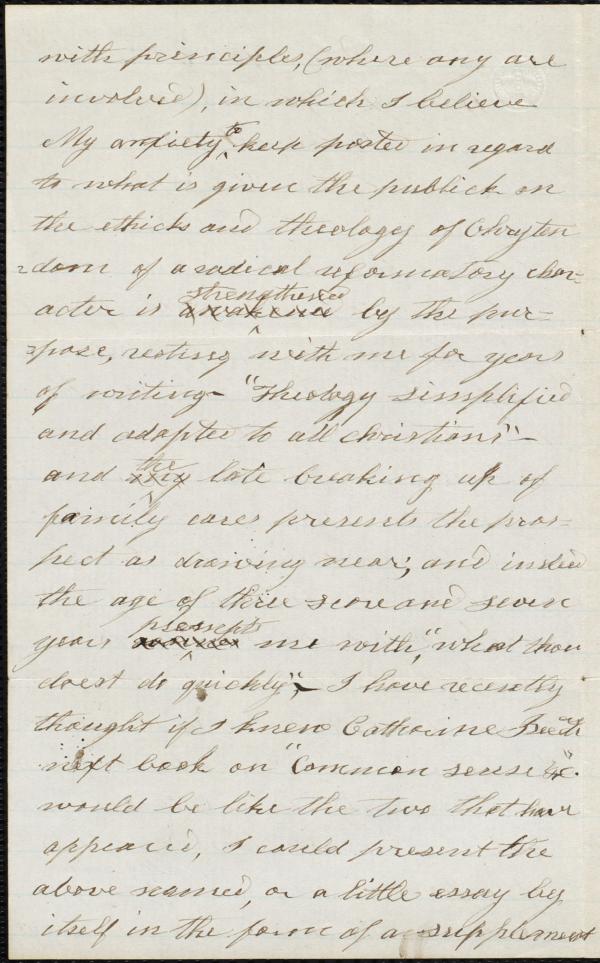 with principles, (where any are
involved), in which I believe
My anxiety to keep posted in regard
to what is given the publick on
the ethicks and theology of Christen
-dom of a radical reformatory char-
acter is strengthened by the pur-
-pose, resting with me for years
of writing "Theology simplified
and adapted to all christians" -
and the late breaking up of
family cares presents the pros-
pect as drawing near; and indeed
the age of three score and seven
years presents me with, "what thou
doest do quickly", - I have recently
thought if I knew Catharine Beech
next book on "Common sense" &c.
would be like the two that have
appeared, I could present the
above named, or a little essay by
itself in the form of a supplement